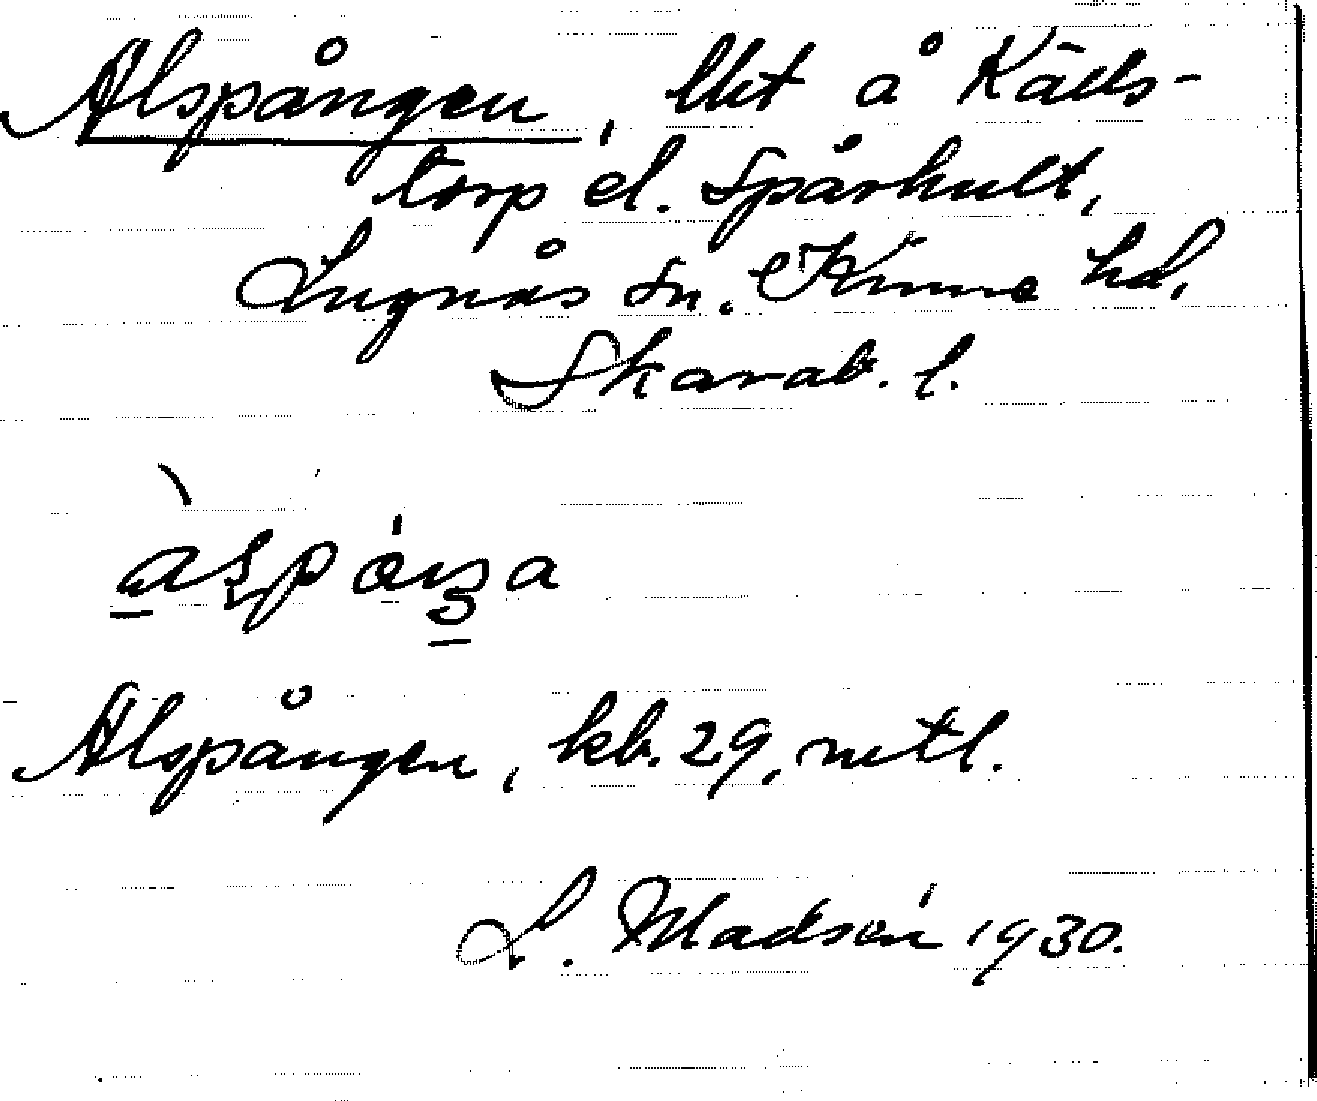 Alspången, lht å Källs-
torp el. Spårhult,
Lugnås sn. Kinne hd,
Skarab. l.
Alspången, kb. 29, mtl.
L. Madsén 1930.